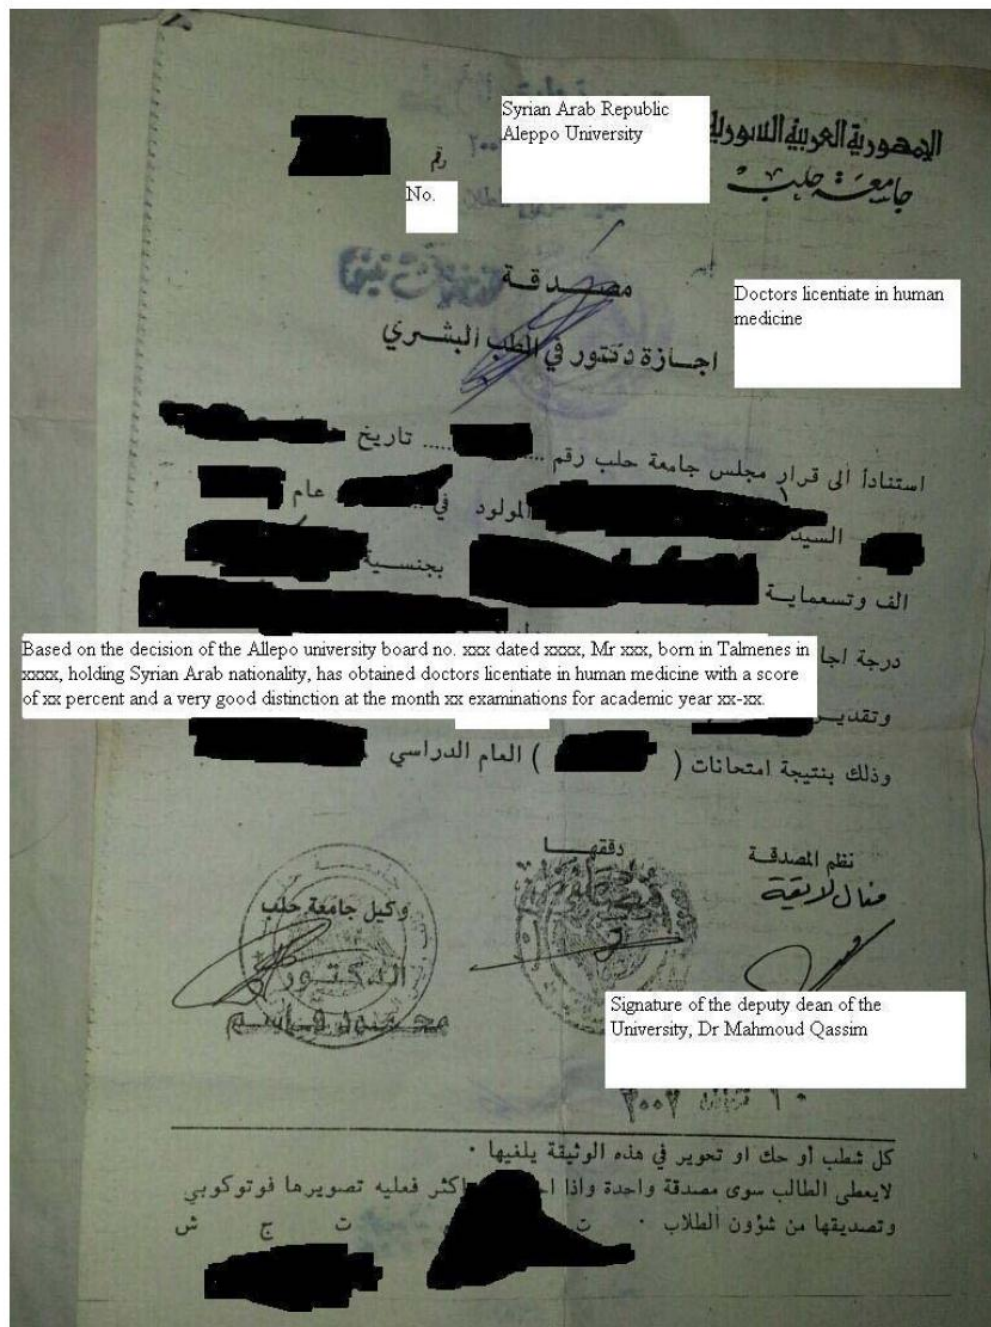 الجمهورية العربية السورية
جامعة حلب
Syrian Arab Republic
Aleppo University
رقم
No.
مصدقة
اجازة دكتور في الطب البشري
Doctors licentiate in human
medicine
استنادا الى قرار مجلس جامعة حلب رقم ........ تاريخ
السيد المولود في .. عام
الف وتسعماية بجنسية
درجة اجا
Based on the decision of the Allepo university board no. xxx dated xxxx, Mr xxx, born in Talmenes in
xxxx, holding Syrian Arab nationality, has obtained doctors licentiate in human medicine with a score
of xx percent and a very good distinction at the month xx examinations for academic year xx-xx.
وتقدير
وذلك بنتيجة امتحانات ( ) العام الدراسي
نظم المصدقة
دققها
منال لايقة
وكيل جامعة حلب
الدكتور
محمود قاسم
Signature of the deputy dean of the
University, Dr Mahmoud Qassim
كل شطب أو حك او تحوير في هذه الوثيقة يلغيها ٠
لايعطى الطالب سوى مصدقة واحدة واذا اكثر فعليه تصويرها فوتوكوبي
وتصديقها من شؤون الطلاب ٠ ت ت ج ش